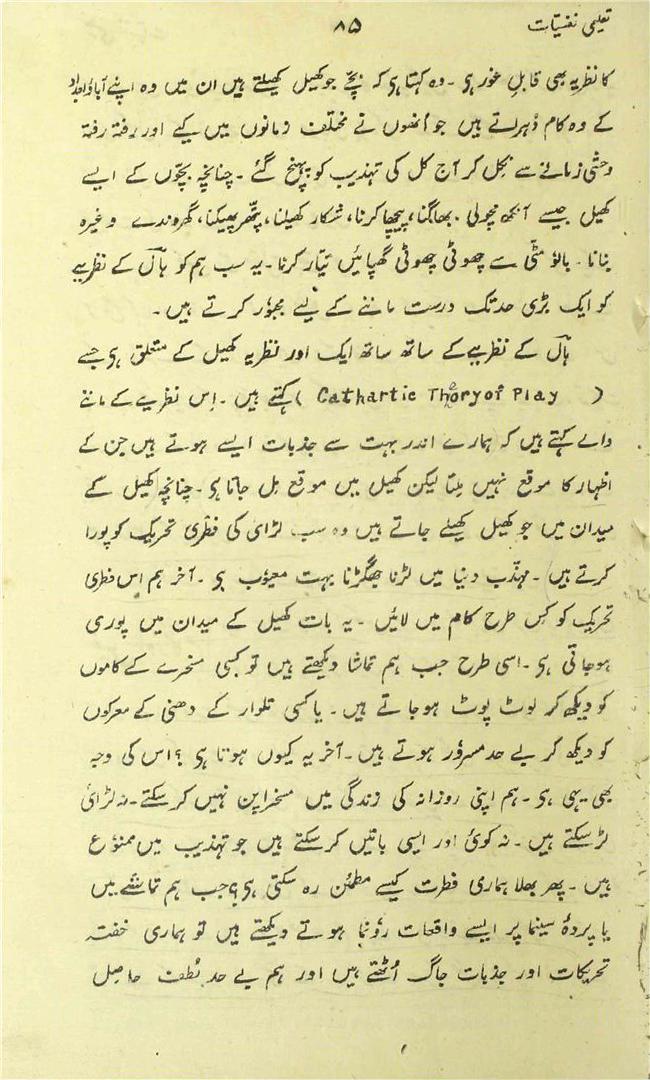 تعلیمی نفسیات
۸۵
کا نظریہ بھی قابلِ غور ہی ۔ وہ کہتا ہی کہ بچّے جو کھیل کھیلتے ہیں ان میں وہ اپنے آباؤ اجداد
کے وہ کام دُہراتے ہیں جو اُنھوں نے مختلف زمانوں میں کیے اور رفتہ رفتہ
وحشی زمانے سے نِکل کر آج کل کی تہذیب کو پہنچ گئے ۔ چنانچہ بچّوں کے ایسے
کھیل جیسے آنکھ مچولی ۔ بھاگنا، پیچھا کرنا، شکار کھیلنا، پتّھر پھینکنا، گھروندے وغیرہ
بنانا ۔ بالؤ مٹّی سے چھوٹی چھوٹی گپھائیں تیّار کرنا ۔ یہ سب ہم کو ہالؔ کے نظریے
کو ایک بڑی حد تک درست ماننے کے لیے مجبؤر کرتے ہیں ۔
ہالؔ کے نظریے کے ساتھ ساتھ ایک اور نظریہ کھیل کے متعلق ہی جسے
( Cathartic Theory of Play ) کہتے ہیں ۔ اِس نظریے کے ماننے
والے کہتے ہیں کہ ہمارے اندر بہت سے جذبات ایسے ہوتے ہیں جن کے
اظہار کا موقع نہیں مِلتا لیکن کھیل میں موقع مِل جاتا ہی ۔ چنانچہ کھیل کے
میدان میں جو کھیل کھیلے جاتے ہیں وہ سب لڑائی کی فطری تحریک کو پورا
کرتے ہیں ۔ مہذّب دنیا میں لڑنا جھگڑنا بہت معیؤب ہی ۔ آخر ہم اس فطری
تحریک کو کِس طرح کام میں لائیں ۔ یہ بات کھیل کے میدان میں پوری
ہوجاتی ہی ۔ اسی طرح جب ہم تماشا دیکھتے ہیں تو کسی مسخرے کے کاموں
کو دیکھ کر لوٹ پوٹ ہوجاتے ہیں ۔ یا کسی تلوار کے دھنی کے معرکوں
کو دیکھ کر بے حد مسرؤر ہوتے ہیں ۔ آخر یہ کیوں ہوتا ہی ؟ اس کی وجہ
بھی یہی ہی ۔ ہم اپنی روزانہ کی زندگی میں مسخراپن نہیں کرسکتے ۔ نہ لڑائی
لڑ سکتے ہیں ۔ نہ کوئی اور ایسی باتیں کرسکتے ہیں جو تہذیب میں ممنؤع
ہیں ۔ پھر بھلا ہماری فطرت کیسے مطمئن رہ سکتی ہی؟ جب ہم تماشے میں
یا پردۂ سینما پر ایسے واقعات رؤنما ہوتے دیکھتے ہیں تو ہماری خفتہ
تحریکات اور جذبات جاگ اُٹھتے ہیں اور ہم بے حد لُطف حاصِل